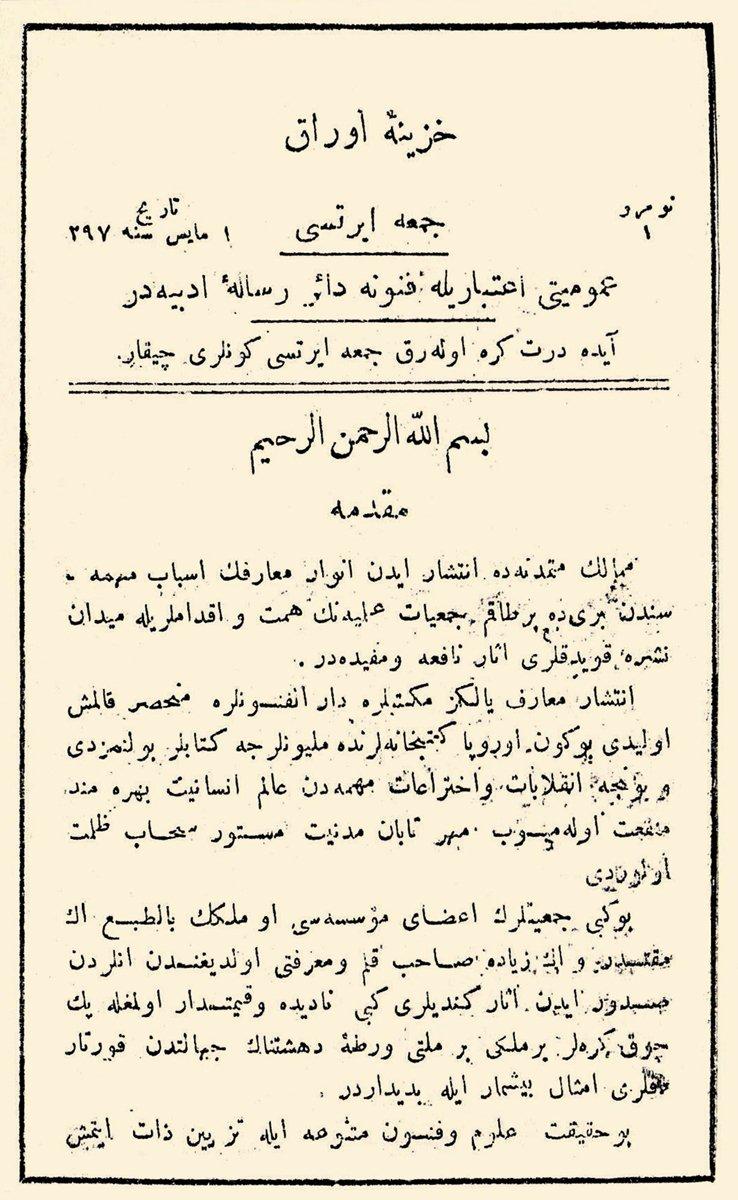 خزینۀ اوراق
نومرو
١
جمعه ایرتسی
تاریخ
١ مایس سنه ٢٩٧
عمومیتی اعتباریله فنونه دائر رسالۀ ادبیه‌در
آیده درت کره اوله‌رق جمعه ایرتسی کونلری چیقار.
بسم الله الرحمن الرحیم
مقدمه
ممالك متمدنه‌ده انتشار ایدن انوار معارفك اسباب مهمه -
سندن بری‌ده برطاقم جمعیات علیه‌نك همت و اقداملریله میدان
نشره قویدقلری اثار نافعه ومفیده‌در .
انتشار معارف یالکز مکتبلره دار الفنونلره منحصر قالمش
اولیدی بوکون اوروپا کتبخانه‌لرنده ملیونلرجه کتابلر بولنمزدی
و بونجه انقلابات واختراعات مهمه‌دن عالم انسانیت بهره مند
منفعت اوله‌میوب مهر تابان مدنیت مستور سحاب ظلمت
اولوردی
بوکبی جمعیتلرك اعضای مؤسسه‌سی او ملکك بالطبع اك
مقتدر و اك زیاده صاحب قلم ومعرفتی اولدیغندن انلردن
صدور ایدن اثار کندیلری کبی نادیده وقیمتدار اولمغله پك
چوق کره‌لر برملکی بر ملتی ورطۀ دهشتناك جهالتدن قورتار
دقلری امثال بیشمار ایله بدیداردر .
بوحقیقت علوم وفنون متنوعه ایله تزیین ذات ایتمش